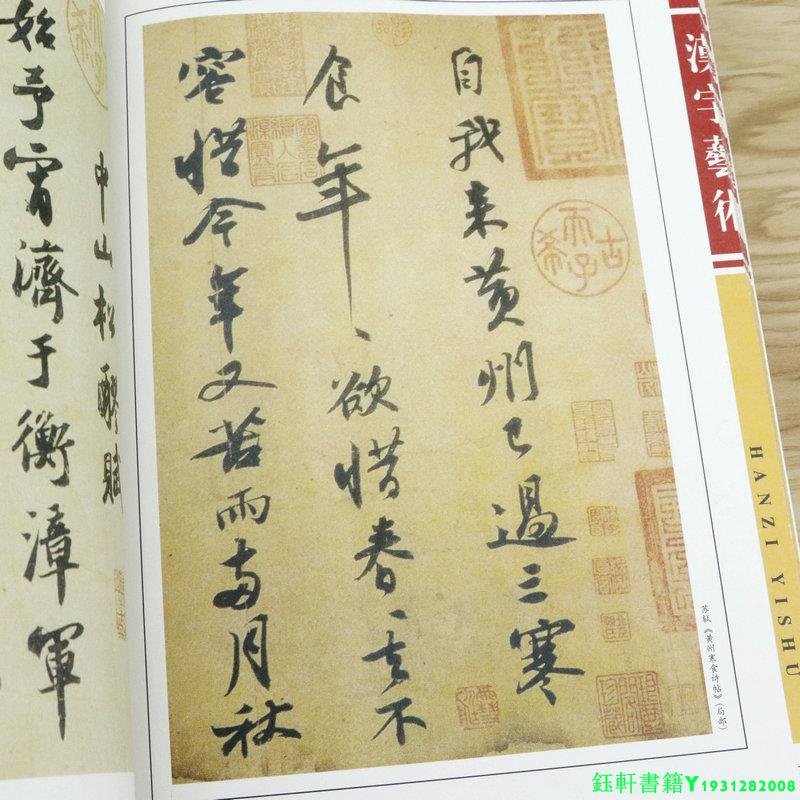 漢字藝術
HANZI YISHU
自我来黄州已過三寒
食年〻欲惜春〻去不
容惜今年又苦雨兩月秋
古希天子
苏轼《黄州寒食诗帖》(局部)
中山松醪賦
始予宵濟于衡漳軍
鈺軒書籍Y1931282008